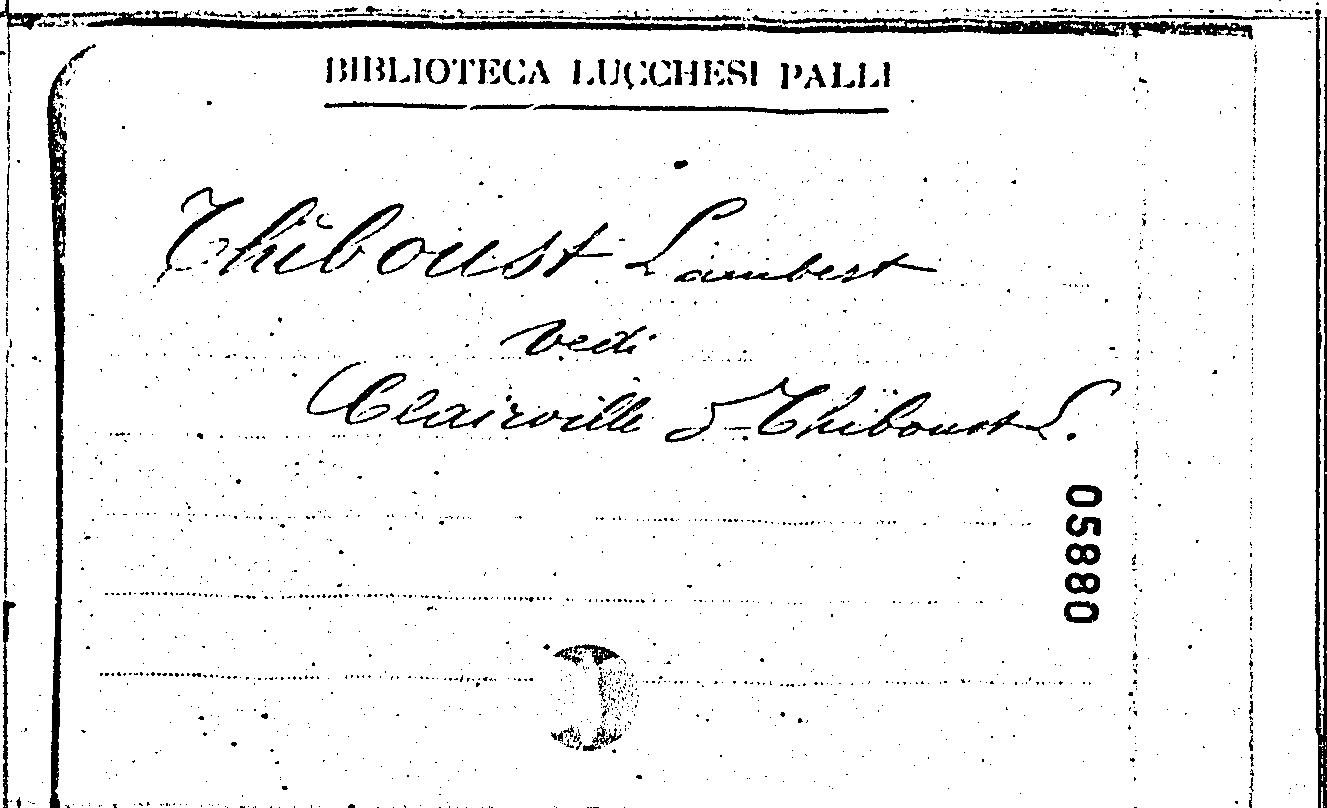 BIBLIOTECA LUCCHESI PALLI
Thiboust Lambert
vedi
Clairville & Thiboust L.
05880